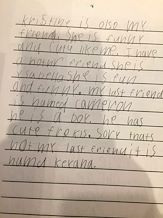 kristine is also my
friend. She is funny
and cute like me. I have
a nothr friend she is
She is fun
and funny. my last friend
is named cameron
he is a boy. he has
cute frekis. Sory thats
not my last friend it is
namd kerana.